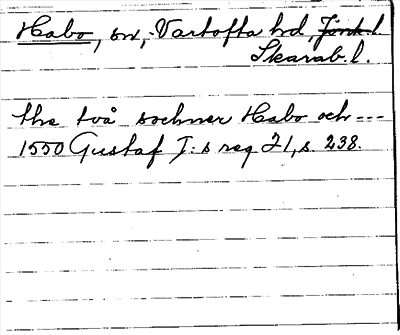 Habo, sn, Vartofta hd, Jönk. l.
Skarab. l.
the två sochner Habo och ---
1550 Gustaf I:s reg 21, s. 238.